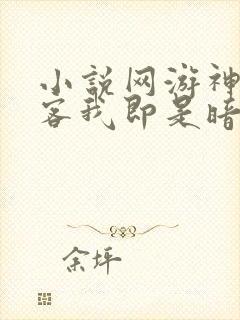 小說网游神
客我即是暗
余坪